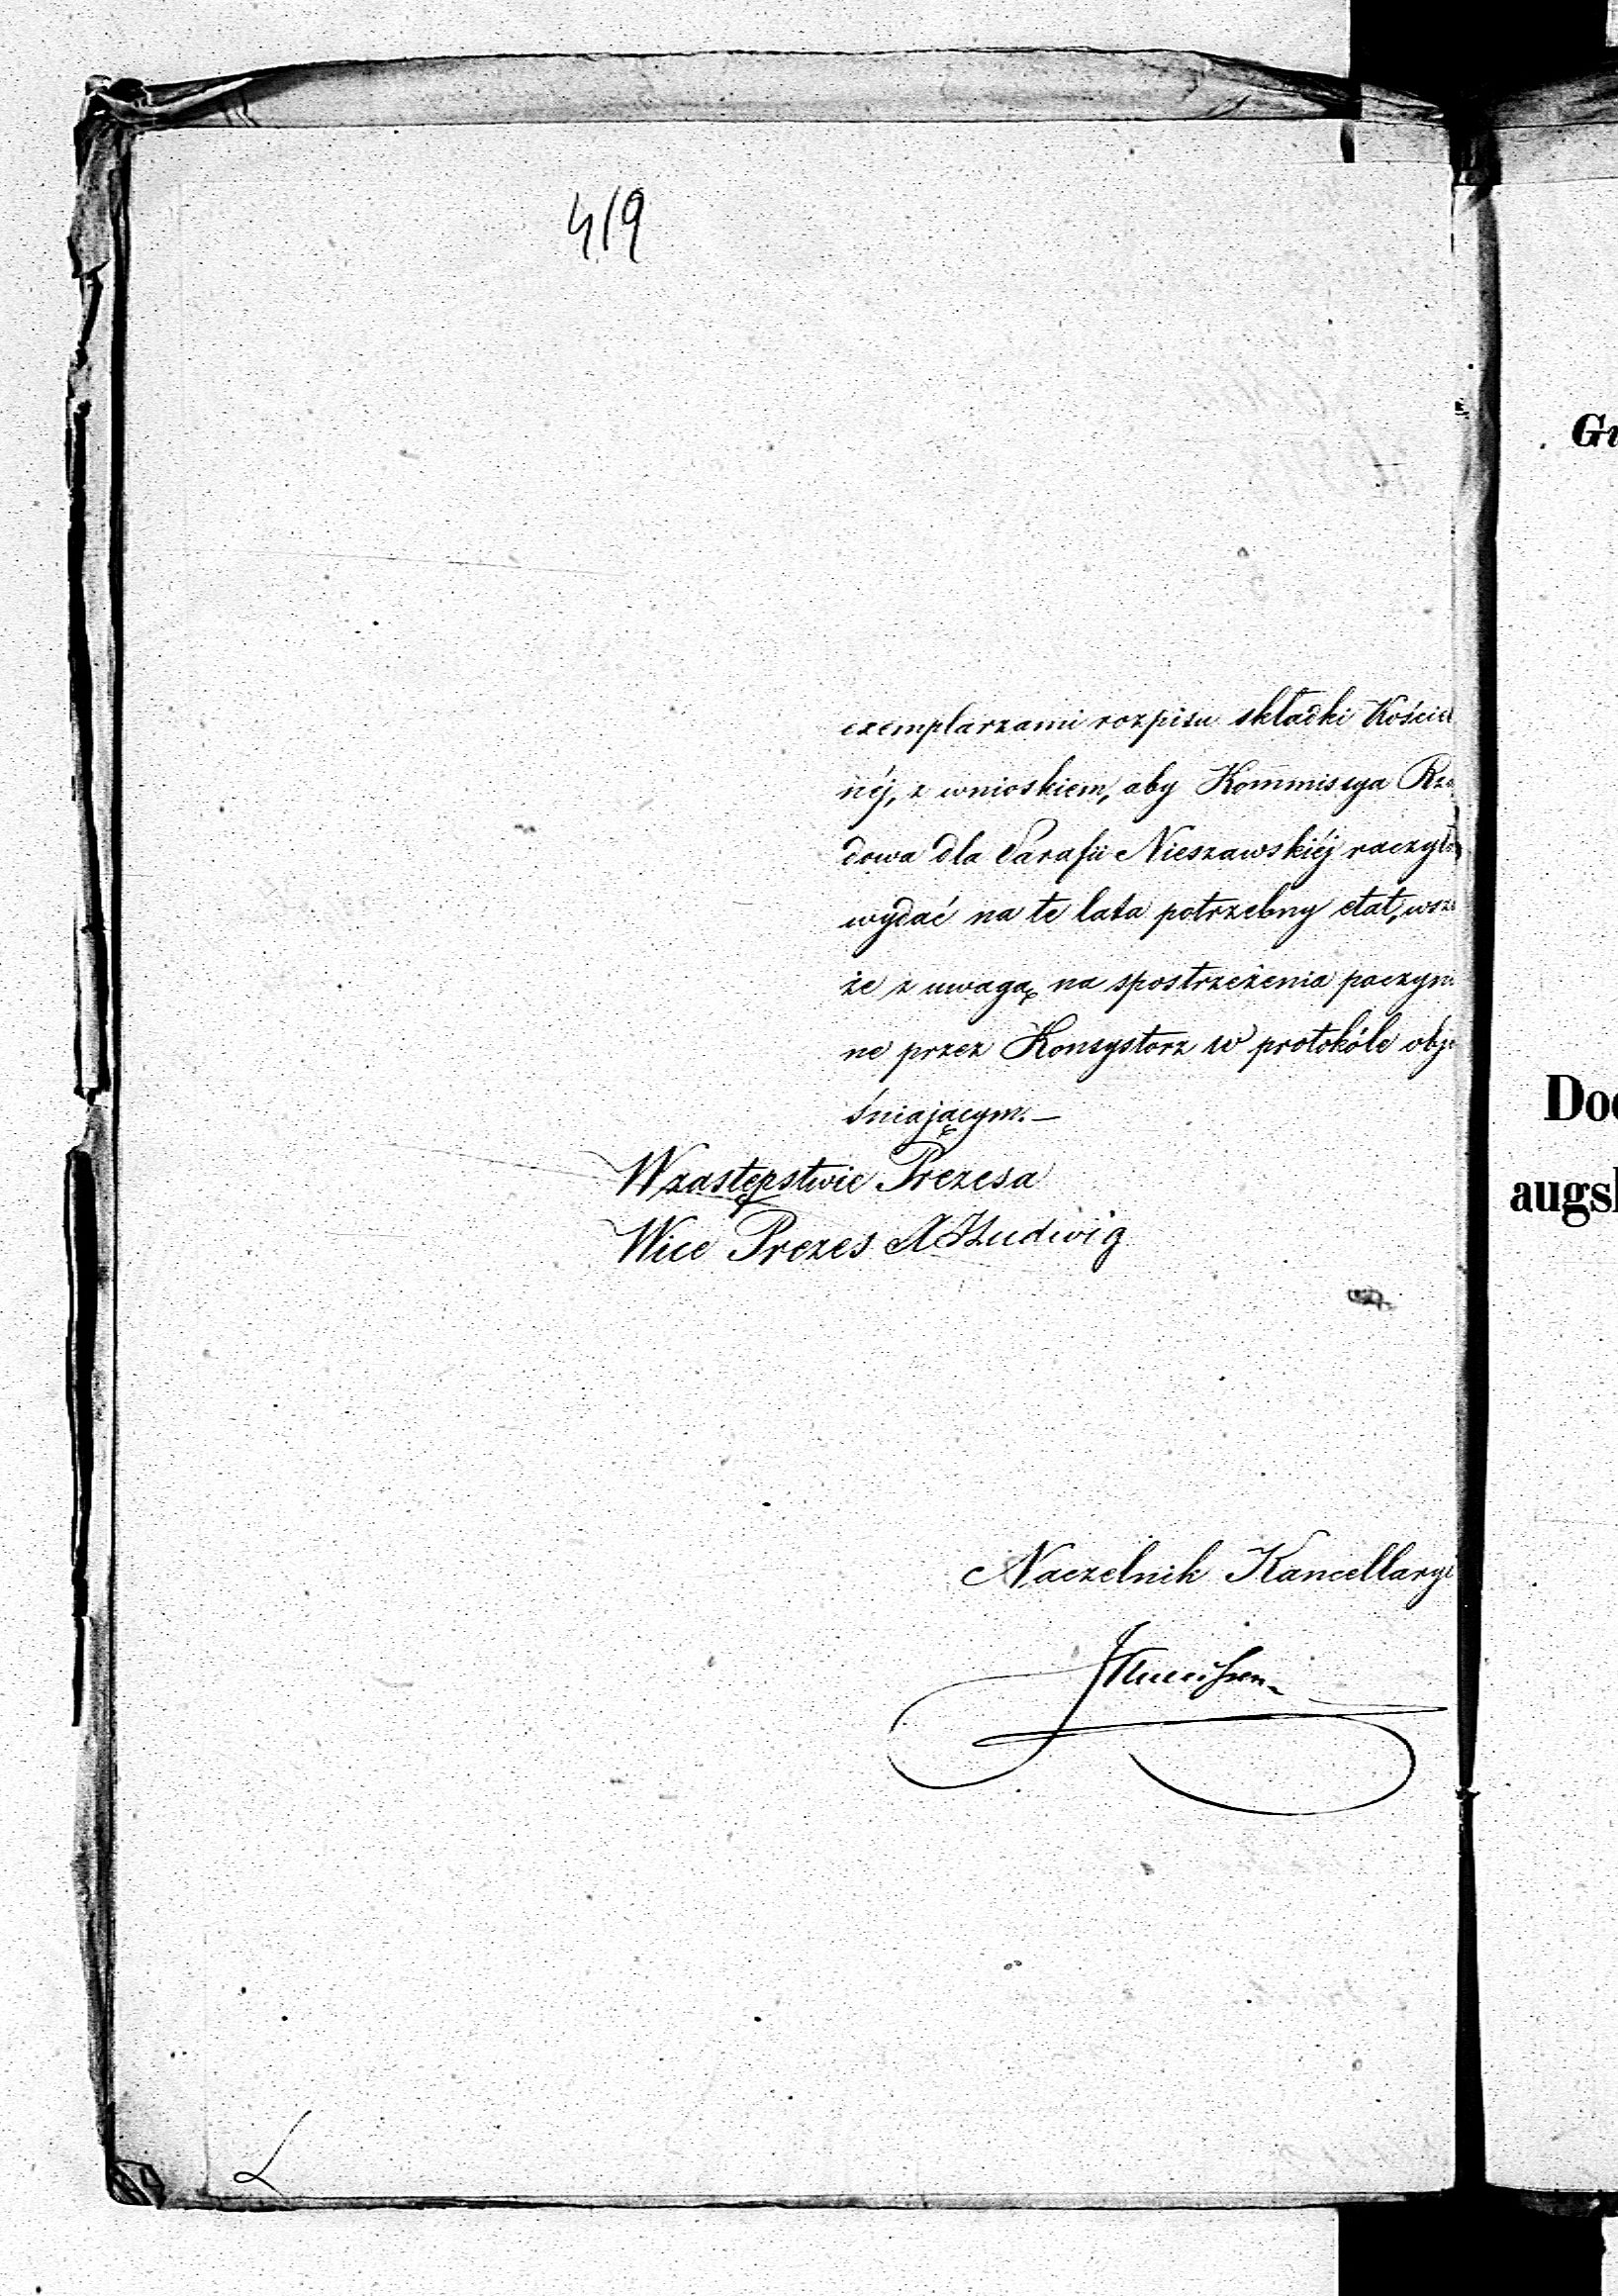 419
exemplarzami rozpisu składki Kościel
néj, z wnioskiem, aby Kommissya Rzą
dowa dla Parafii Nieszawskiéj raczyła
wydać na te lata potrzebny etat, wsza
że z uwagą na spostrzeżenia poczyni
ne przez Konsystorz w protokóle obja
śniającym. —
W zastępstwie Prezesa
Wice Prezes Ludwig
Naczelnik Kancellaryi
L
Gu
Doc
augs